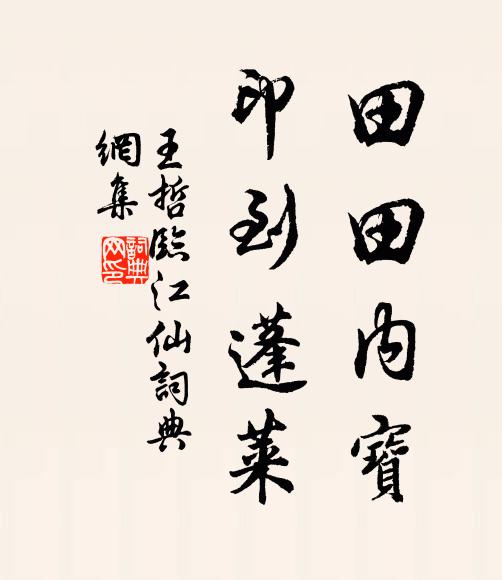 田田内寶
印到蓬萊
王哲臨江仙詞典
網集
詞典
网印